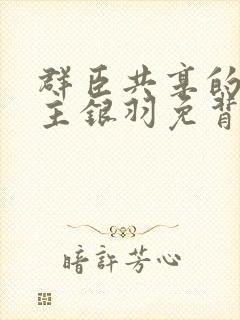 群臣共享的
主银羽免背
暗許芳心